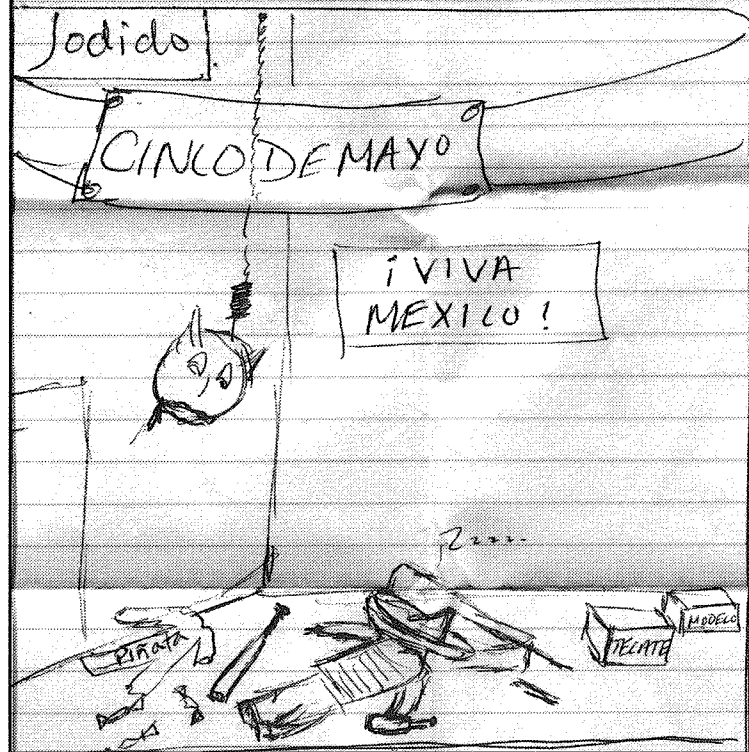 Jodido
CINCO DE MAYO
¡VIVA
MEXICO!
Zzzz....
Piñata
TECATE
MODELO